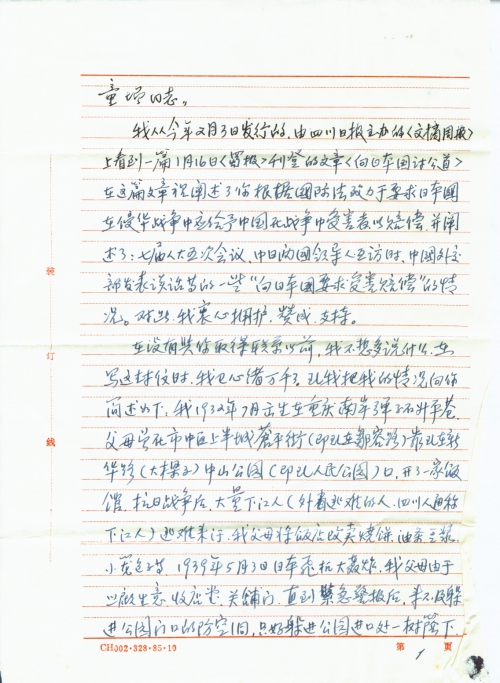 童增同志。
我从今年2月3日发行的,由四川日报主办的《文摘周报》
上看到一篇1月16日《蜀报》刊登的文章《向日本国讨公道》
在这篇文章裡阐述了你根据國际法致力于要求日本國
在侵华战争中应给予中国在战争中受害者以赔偿,并阐
述了:七届人大五次会议,中日两國领导人互访时,中國外交
部发表谈话等的一些“向日本國要求受害赔偿”的情
况。对此,我衷心拥护、赞成、支持。
在没有具体取得联系以前,我不想多说什么,在
写这封信时,我已心绪万千,现我把我的情况向你
简述如下,我1932年7月出生在重庆南岸弹子石
父母曾在市中区上半城蒼平街(即现在鄒容路)靠现在新
华路(大樑子)中山公園(即现人民公園)口,开了一家饭
馆,抗日战争后,大量下江人(外省逃难的人,四川人通称
下江人)逃难来渝,我父母将饭店改卖烧饼、油条、豆浆、
小笼包等 1939年5月3日日本飞机大轰炸,我父母由于
生意收店堂、关铺门,直到緊急警报后,来不及躲
进公園门口的防空洞,只好躲进公園进口处一树荫下,
装
订
线
CH002·328·85·10
第 1 页